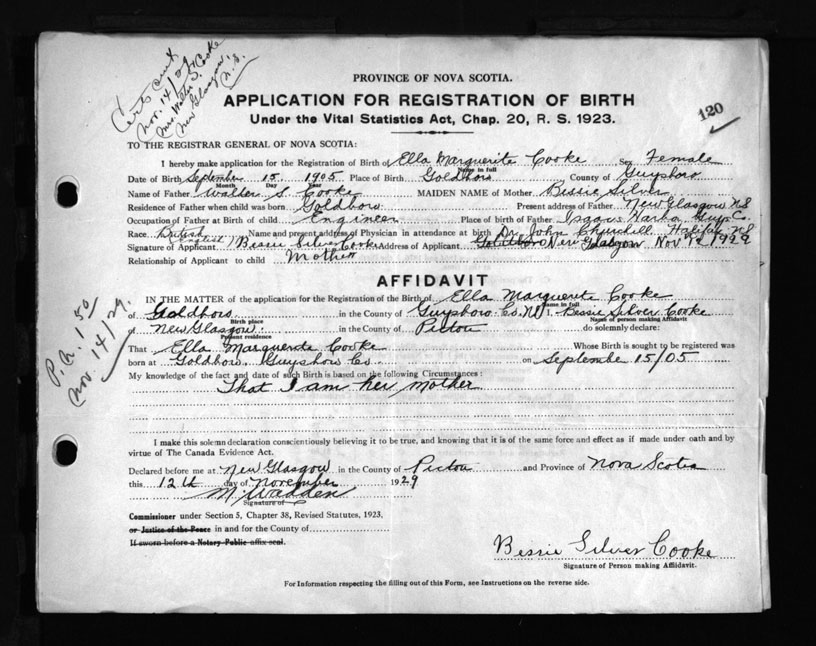 Certs out
Nov. 14/29
Mrs. Walter S. Cooke
New Glasgow,
N.S.
120
PROVINCE OF NOVA SCOTIA.
APPLICATION FOR REGISTRATION OF BIRTH
Under the Vital Statistics Act, Chap. 20, R. S. 1923.
TO THE REGISTRAR GENERAL OF NOVA SCOTIA:
I hereby make application for the Registration of Birth of Ella Marguerite Cooke Sex Female
Name in full
Date of Birth September 15 1905 Place of Birth Goldboro County of Guysboro
Month Day Year
Name of Father Walter S. Cooke MAIDEN NAME of Mother Bessie Silver
Residence of Father when child was born Goldboro Present address of Father New Glasgow NS
Occupation of Father at Birth of child Engineer Place of birth of Father Isaacs Harbor Guys Co.
Race British (English) Name and present address of Physician in attendance at birth Dr. John Churchill Halifax NS
Signature of Applicant Bessie Silver Cooke Address of Applicant Goldboro New Glasgow Nov 12 1929
Relationship of Applicant to child Mother
AFFIDAVIT
P.A. 1.50
Nov. 14/29.
IN THE MATTER of the application for the Registration of the Birth of Ella Marguerite Cooke
Name in full
of Goldboro in the County of Guysboro Co. NS I, Bessie Silver Cooke
Birth place Name of person making Affidavit
of New Glasgow. in the County of Pictou do solemnly declare:
Present residence
That Ella Marguerite Cooke Whose Birth is sought to be registered was
born at Goldboro, Guysboro Co. on September 15/05
My knowledge of the fact and date of such Birth is based on the following Circumstances:
That I am her Mother
I make this solemn declaration conscientiously believing it to be true, and knowing that it is of the same force and effect as if made under oath and by
virtue of The Canada Evidence Act.
Declared before me at New Glasgow in the County of Pictou and Province of Nova Scotia
this 12th day of November 1929
M. Wadden
Signature of
Commissioner under Section 5, Chapter 38, Revised Statutes, 1923,
or Justice of the Peace in and for the County of
If sworn before a Notary Public affix seal.
Bessie Silver Cooke
Signature of Person making Affidavit.
For Information respecting the filling out of this Form, see Instructions on the reverse side.